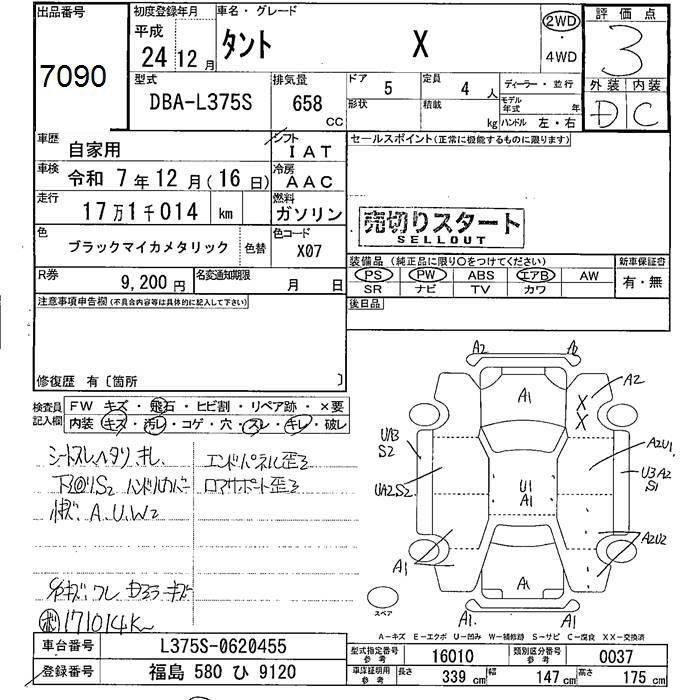 出品番号
7090
初度登録年月
平成
24 12 月
車名・グレード
タント X
2WD
・
4WD
評価点
3
外装 内装
D C
型式
DBA-L375S
排気量
658
CC
ドア 5
形状
定員 4 人
積載 kg
ディーラー・並行
モデル年式 年
ハンドル 左・右
車歴
自家用
シフト
IAT
車検
令和 7年12月(16日)
冷房
AAC
走行
17万1千014 km
燃料
ガソリン
色
ブラックマイカメタリック
色替
色コード
X07
R券
9,200 円
名変通知期限
月 日
セールスポイント(正常に機能するものに限ります)
売切りスタート
SELLOUT
装備品(純正品に限り○をつけてください)
新車保証書
PS PW ABS エアB AW
有・無
SR ナビ TV カワ
後日品
注意事項申告欄(不具合内容等は具体的に記入して下さい)
修復歴 有〔箇所 〕
検査員
記入欄
FW キズ・飛石・ヒビ割・リペア跡・×要
内装 キズ・汚レ・コゲ・穴・スレ・キレ・破レ
シートスレ ヘタリ キレ
エンドパネル歪ミ
ハンドルカバー
ロアサポート歪ミ
A.U.W2
171014K
A2
A2
A1
A2
X
X
U1B
S2
A2U1
UA2.S2
U1
A1
U3A2
S1
A2U2
A1
A1
A1.
A1.
スペア
A-キズ E-エクボ U-凹み W-補修跡 S-サビ C-腐食 XX-交換済
車台番号
L375S-0620455
登録番号
福島 580 ひ 9120
型式指定番号
参考
16010
類別区分番号
参考
0037
車庫証明用
参考
長さ 339 cm 幅 147 cm 高さ 175 cm